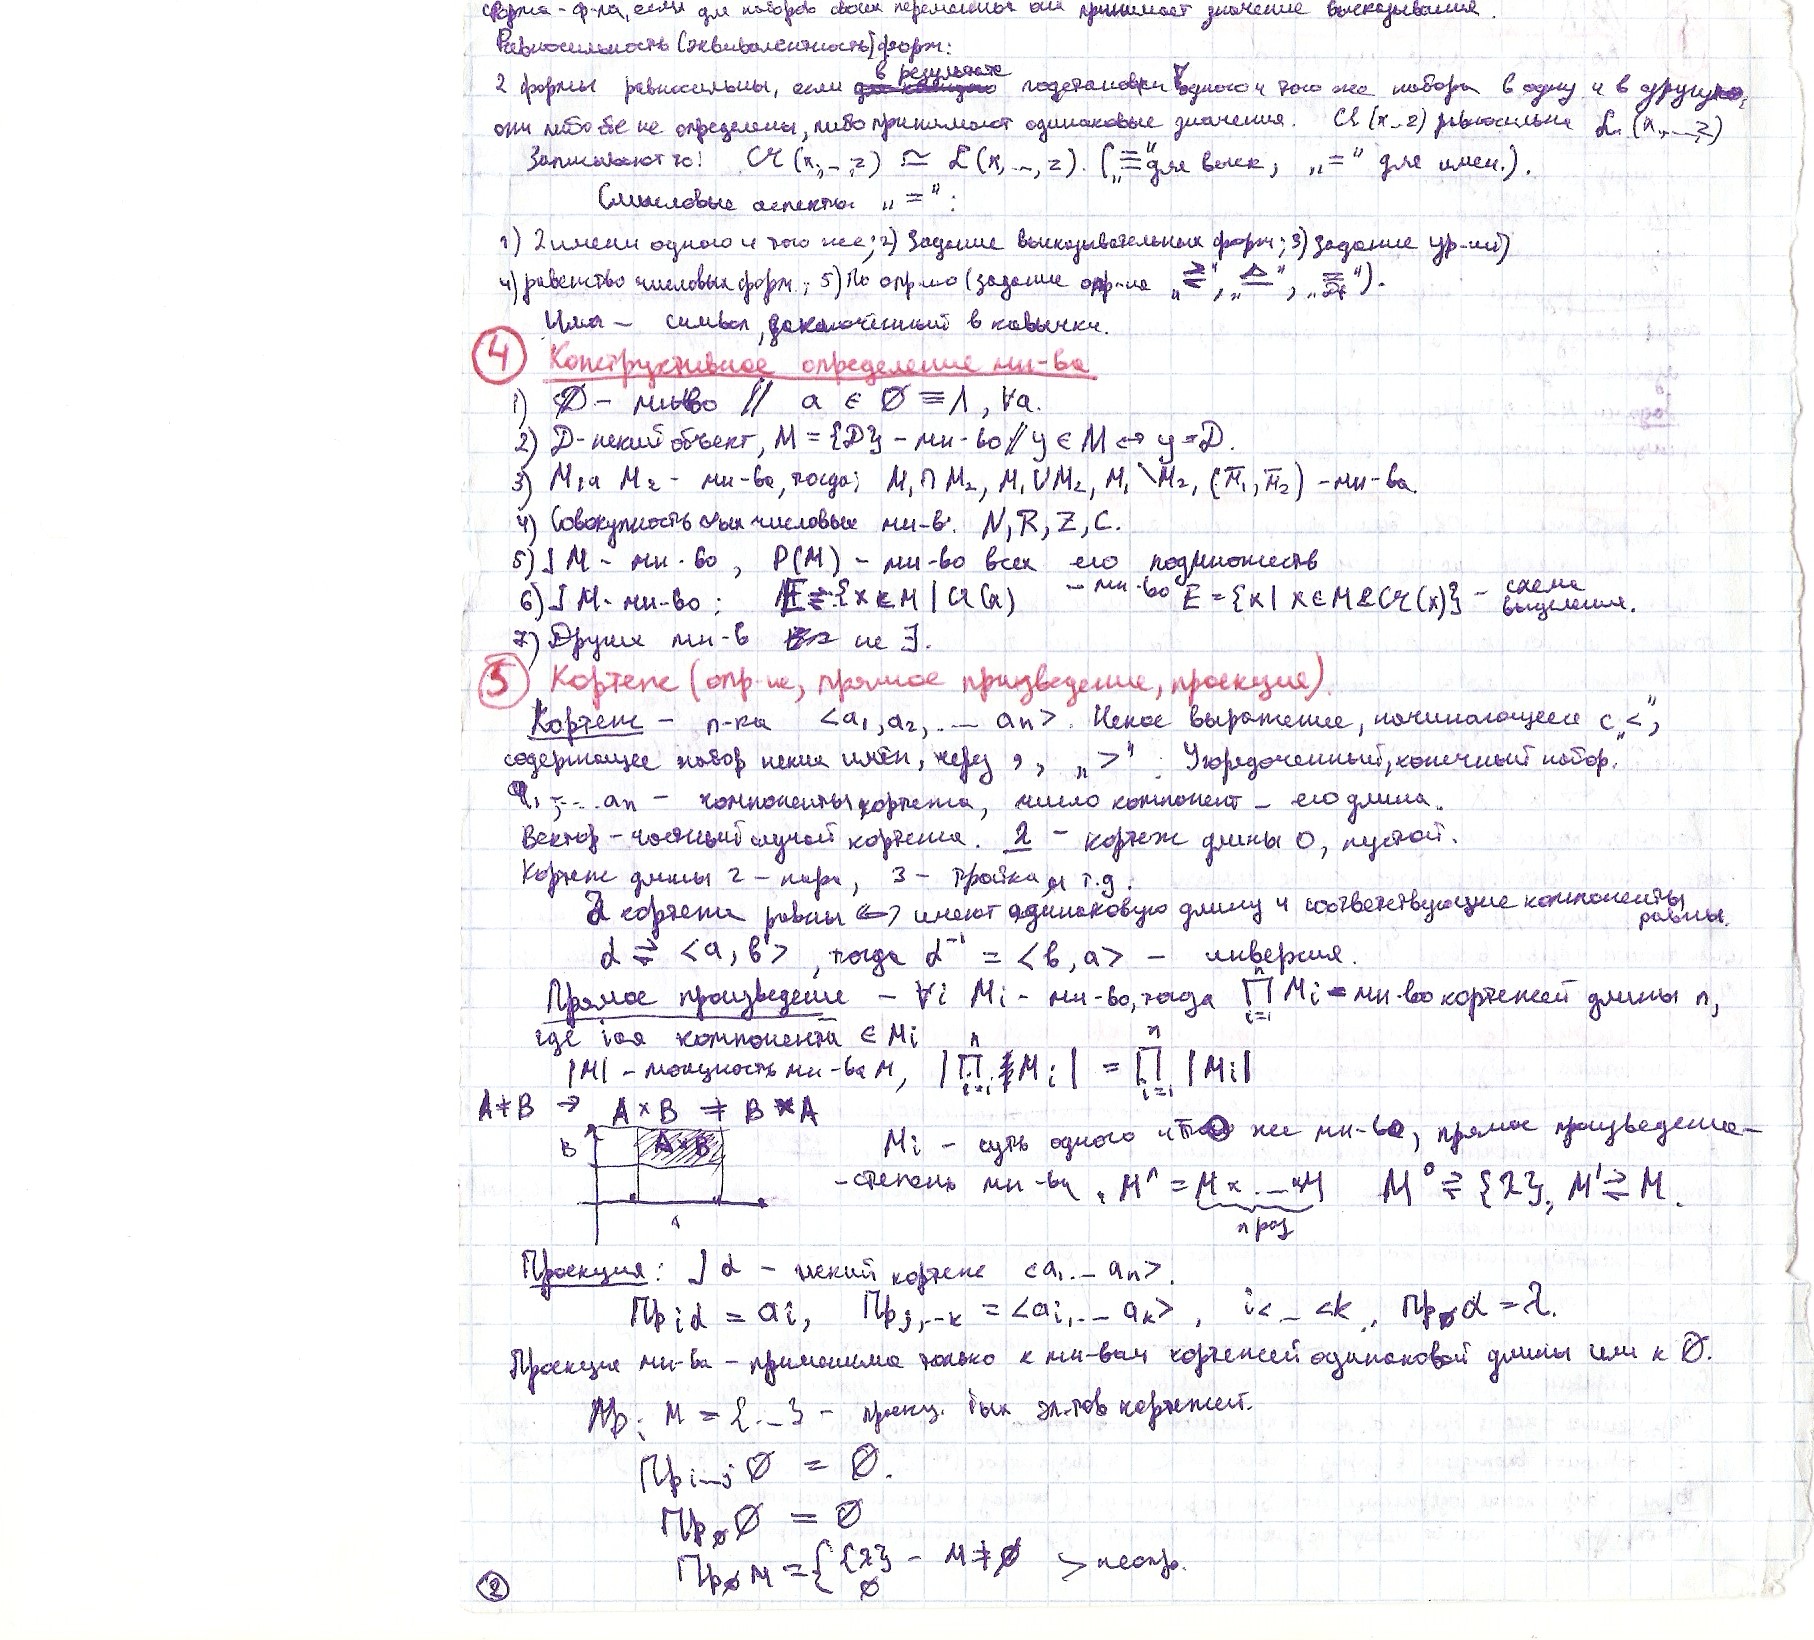 форма - ф-ла, если для набора своих переменных она принимает значение высказывания.
Равносильность (эквивалентность) форм:
2 формы равносильны, если в результате подстановки одного и того же набора в одну и в другую,
они либо обе не определены, либо принимают одинаковые значения. 𝔄(x_z) равносильна ℒ(x,_,z)
Записывают: 𝔄(x,_,z) ≃ ℒ(x,_,z). („≡“ для выск, „=“ для имен.).
Смысловые аспекты „=“:
1) 2 имени одного и того же; 2) Задание высказывательных форм; 3) Задание ур-ий)
4) равенство числовых форм; 5) По опр-ию (задание опр-ия „⇄“, „≜“, „≡“).
Имя - символ, заключённый в кавычки.
④ Конструктивное определение мн-ва
1) ∅ - мн-во // a ∈ ∅ ≡ Л, ∀a.
2) D - некий объект, M = {D} - мн-во // y ∈ M ↔ y = D.
3) M₁ и M₂ - мн-ва, тогда: M₁∩M₂, M₁∪M₂, M₁\M₂, (M̅₁, M̅₂) - мн-ва.
4) Совокупность числовых мн-в. N, R, Z, C.
5) ] M - мн-во, P(M) - мн-во всех его подмножеств
6) ] M - мн-во: E ⇄ {x ∈ M | 𝔄(x) - мн-во E = {x | x ∈ M & 𝔄(x)} - схема выделения.
7) Других мн-в не ∃.
⑤ Кортеж (опр-ие, прямое произведение, проекция).
Кортеж - n-ка <a₁, a₂, ... aₙ>. Некое выражение, начинающееся с „<“,
содержащее набор неких имён, через , , „>“. Упорядоченный, конечный набор.
a₁, ... aₙ - компоненты кортежа, число компонент - его длина.
Вектор - частный случай кортежа. λ - кортеж длины 0, пустой.
Кортеж длины 2 - пара, 3 - тройка и т.д.
2 кортежа равны ⇔ имеют одинаковую длину и соответствующие компоненты равны.
α ⇄ <a, b>, тогда α⁻¹ = <b, a> - инверсия.
Прямое произведение - ∀i Mi - мн-во, тогда ∏ⁿᵢ₌₁ Mi = мн-во кортежей длины n,
где iая компонента ∈ Mi
|M| - мощность мн-ва M, |∏ⁿᵢ₌₁ Mi| = ∏ⁿᵢ₌₁ |Mi|
A ≠ B → A × B ≠ B × A
B A×B
Mi - суть одного и того же мн-ва, прямое произведение -
- степень мн-ва. Mⁿ = M × ... × M M⁰ ⇄ {λ}, M¹ ⇄ M.
n раз
Проекция: ] α - некий кортеж <a₁ ... aₙ>.
Прi α = ai, Прi,..k = <ai, ... ak>, i < _ < k, Пр∅ α = λ.
Проекция мн-ва - применима только к мн-вам кортежей одинаковой длины или к ∅.
Прi M = {...} - проекц. iых эл-тов кортежей.
Прi_j ∅ = ∅.
Пр∅ ∅ = ∅
Пр∅ M = { {λ} - M ≠ ∅ > неопр.
∅
②